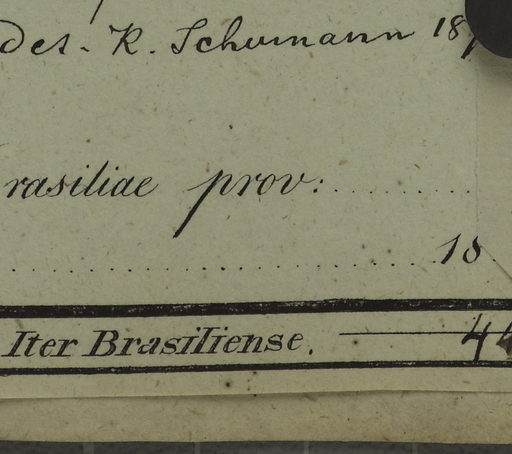 det. K. Schumann 18
rasiliae prov:
18
Iter Brasiliense. 4